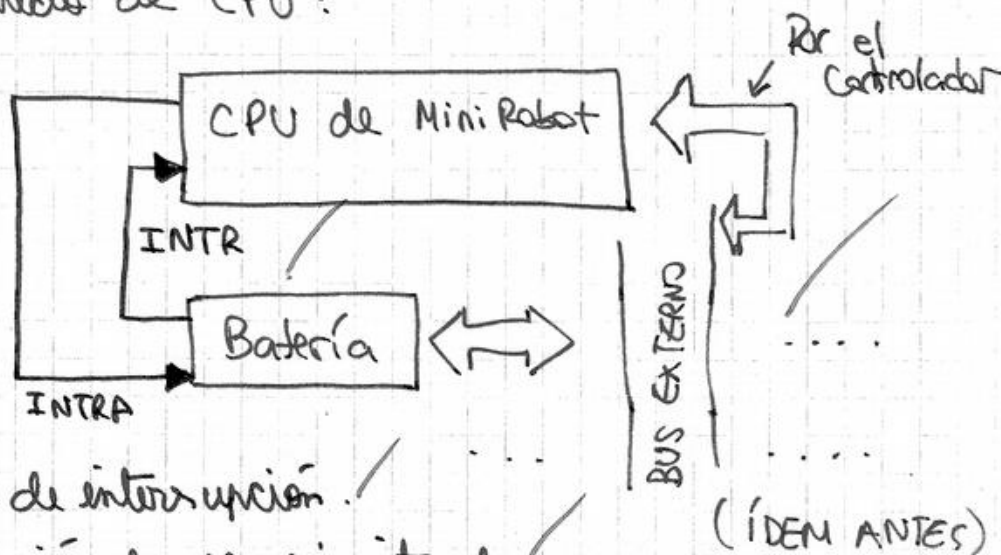 de CPU.
Por el
Controlador
CPU de MiniRobot
INTR
Batería
INTRA
BUS EXTERNO
.....
....
.....
de interrupción.
(ÍDEM ANTES)